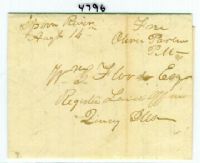 4796
Spoon River
Augt 14th
Free
Oliver Parker
P.M.
Wm G. Flood Esq
Register Land Office
Quincy Ills